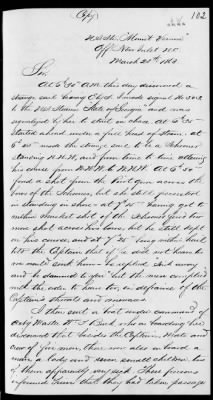 Copy
102
U.S. Str. "Mount Vernon"
Off New Inlet N.C.
March 21st 1863
Sir,
At 5.30 A.M. this day discovered a
strange sail
to the U.S. Steamer "State of Georgia" and was
signalized by her to start in chase. At 5.35
started ahead under a full head of steam, at
6.20 made the strange sail to be a Schooner
standing N.N.W. and from time to time altering
his course from N.N.W. to N.N.E. At 6.50
fired a shot from the Pivot gun across the
bows of the Schooner, but she still persisted
in standing in shore - at 7.20 having got to
within musket shot of the Schooner fired two
more shot across his bows, but he still kept
on his course, and at 7.25 being within hail
told the Captain that if he did not heave to
we would sink him - he replied "sink away
and be damned to you" but the men complied
with the order to heave too, in defiance of the
Captain's threats and menaces.
I then sent a boat under command of
Actg Master on boarding her
discovered that besides the Captain, Mate and
crew of five men, there was also on board a
man, a lady and seven small children, two
of them apparently very sick. These persons
informed them that they had taken passage